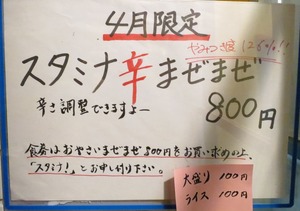 4月限定
やみつき度 126%!!
スタミナ辛まぜまぜ
辛さ調整できますよー
800円
食券はおやさいまぜまぜ800円をお買い求めの上、
「スタミナ!」とお申し付け下さい。
大盛り 100円
ライス 100円